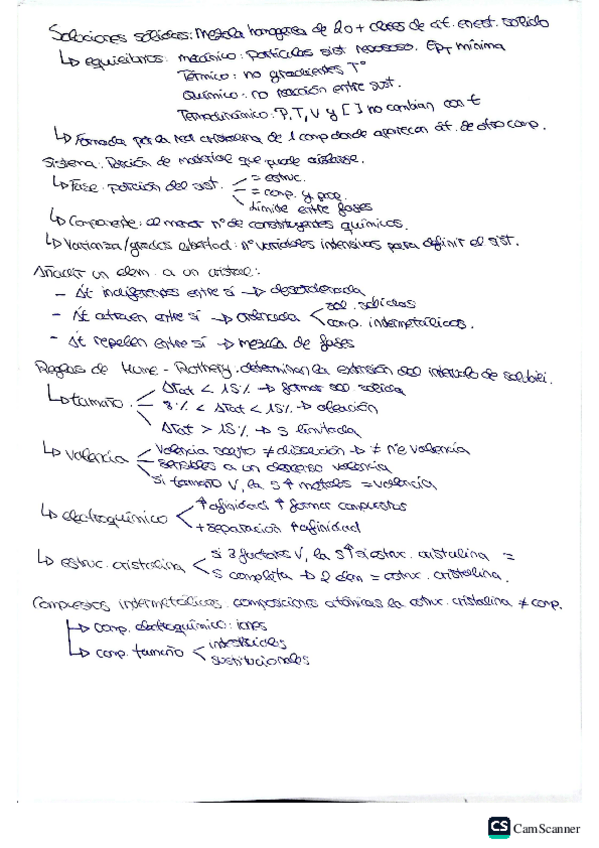 Soluciones sólidas: Mezcla homogenea de 2 o + clases de át. en est. sólido
↳ equilibrios: mecánico: partículas sist reposo. EpT mínima
Térmico: no gradientes Tº
Químico: no reacción entre sust.
Termodinámico: P, T, V y [ ] no cambian con t
↳ Formada por la red cristalina de 1 comp donde aparecen át. de otro comp.
Sistema: Porción de material que puede aislarse.
↳ Fase: porción del sist. = estruc.
= comp. y prop.
límite entre fases
↳ Componente: el menor nº de constituyentes químicos.
↳ Varianza/grados libertad: nº variables intensivas para definir el sist.
Añadir un elem. a un cristal:
- Át indiferentes entre sí → desordenada
- Át atraen entre sí → ordenada sol. sólidas
comp. intermetálicos.
- Át repelen entre sí → mezcla de fases
Reglas de Hume-Rothery: determinan la extensión del intervalo de solubi.
↳ tamaño. ΔTat < 15% → formar sol sólida
8% < ΔTat < 15% → aleación
ΔTat > 15% → s limitada
↳ valencia valencia soluto ≠ disolución → ≠ nºe valencia
sensibles a un descenso valencia
si tamaño V, la s↑ metales = valencia
↳ electroquímico ↑afinidad ↑ formar compuestos
+ separación ↑afinidad
↳ estruc. cristalina si 3 factores V, la s↑ si estruc. cristalina =
s completa → 2 elem = estruc. cristalina.
Compuestos intermetálicos: composiciones atómicas la estruc. cristalina ≠ comp.
↳ comp. electroquímico: iones
↳ comp. tamaño intersticiales
sustitucionales
CS CamScanner